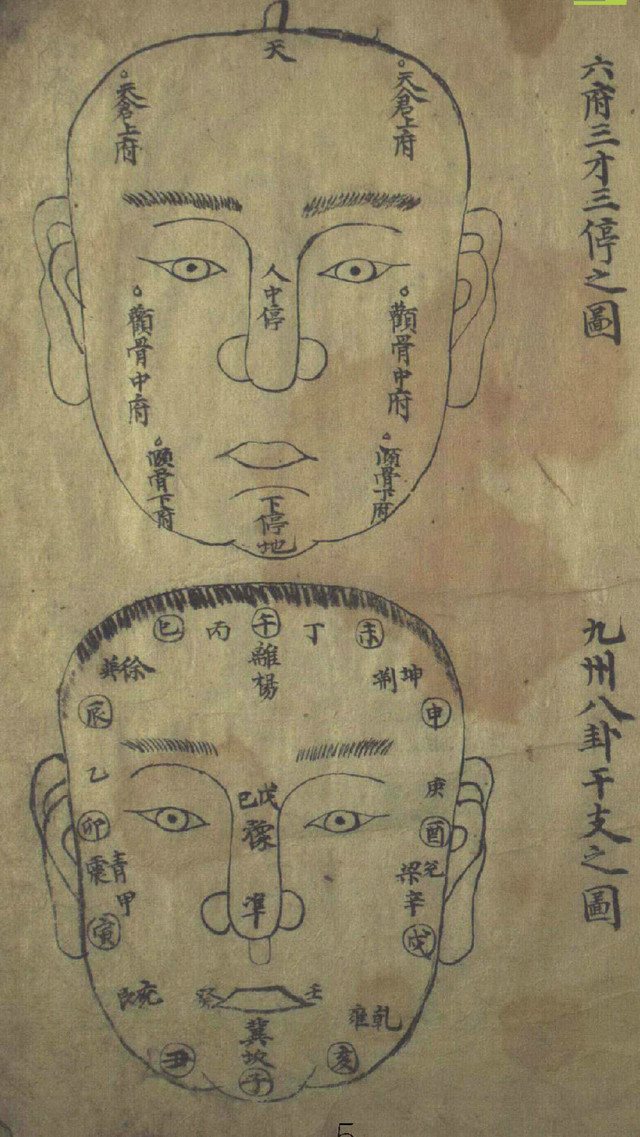 六府三才三停之圖
天
天倉上府
天倉上府
人中停
顴骨中府
顴骨中府
頤骨下府
頤骨下府
下停地
九州八卦干支之圖
未
丁
午
丙
巳
離
揚
坤
荆
徐
申
辰
庚
乙
戊
己
豫
酉
卯
兌
梁
辛
青
震
甲
準
戌
寅
壬
癸
乾
雍
兗
艮
冀
坎
亥
子
丑
5